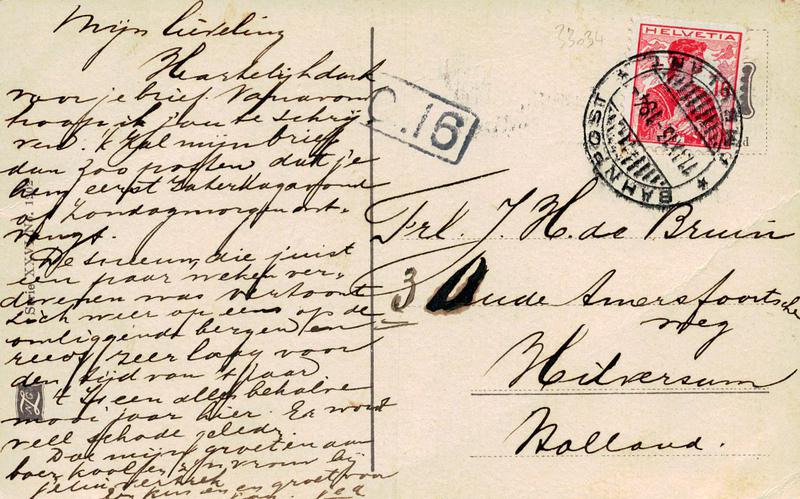 Mijn lieveling
Hartelijk dank
voor je brief. Vanavond
hoop ik jou te schrij
ven. 'k Zal mijn brief
dan zoo posten dat je
hem eerst Zaterdagavond
of Zondagmorgen ont-
vangt.
De sneeuw, die juist
een paar weken ver-
dwenen was vertoont
zich weer op eens op de
omliggende bergen en
reeds zeer laag voor
den tijd van 't jaar
't Is een alles behalve
mooi jaar hier. Er word
veel schade geleden.
Doe mijn groeten aan
vrouw bij
en groet voor
33034
HELVETIA
BAHNPOST
AMBULANT
C.16
Frl. J. H. de Bruin
30 Oude Amersfoortsche
weg
Hilversum
Holland.
Serie XXV No.